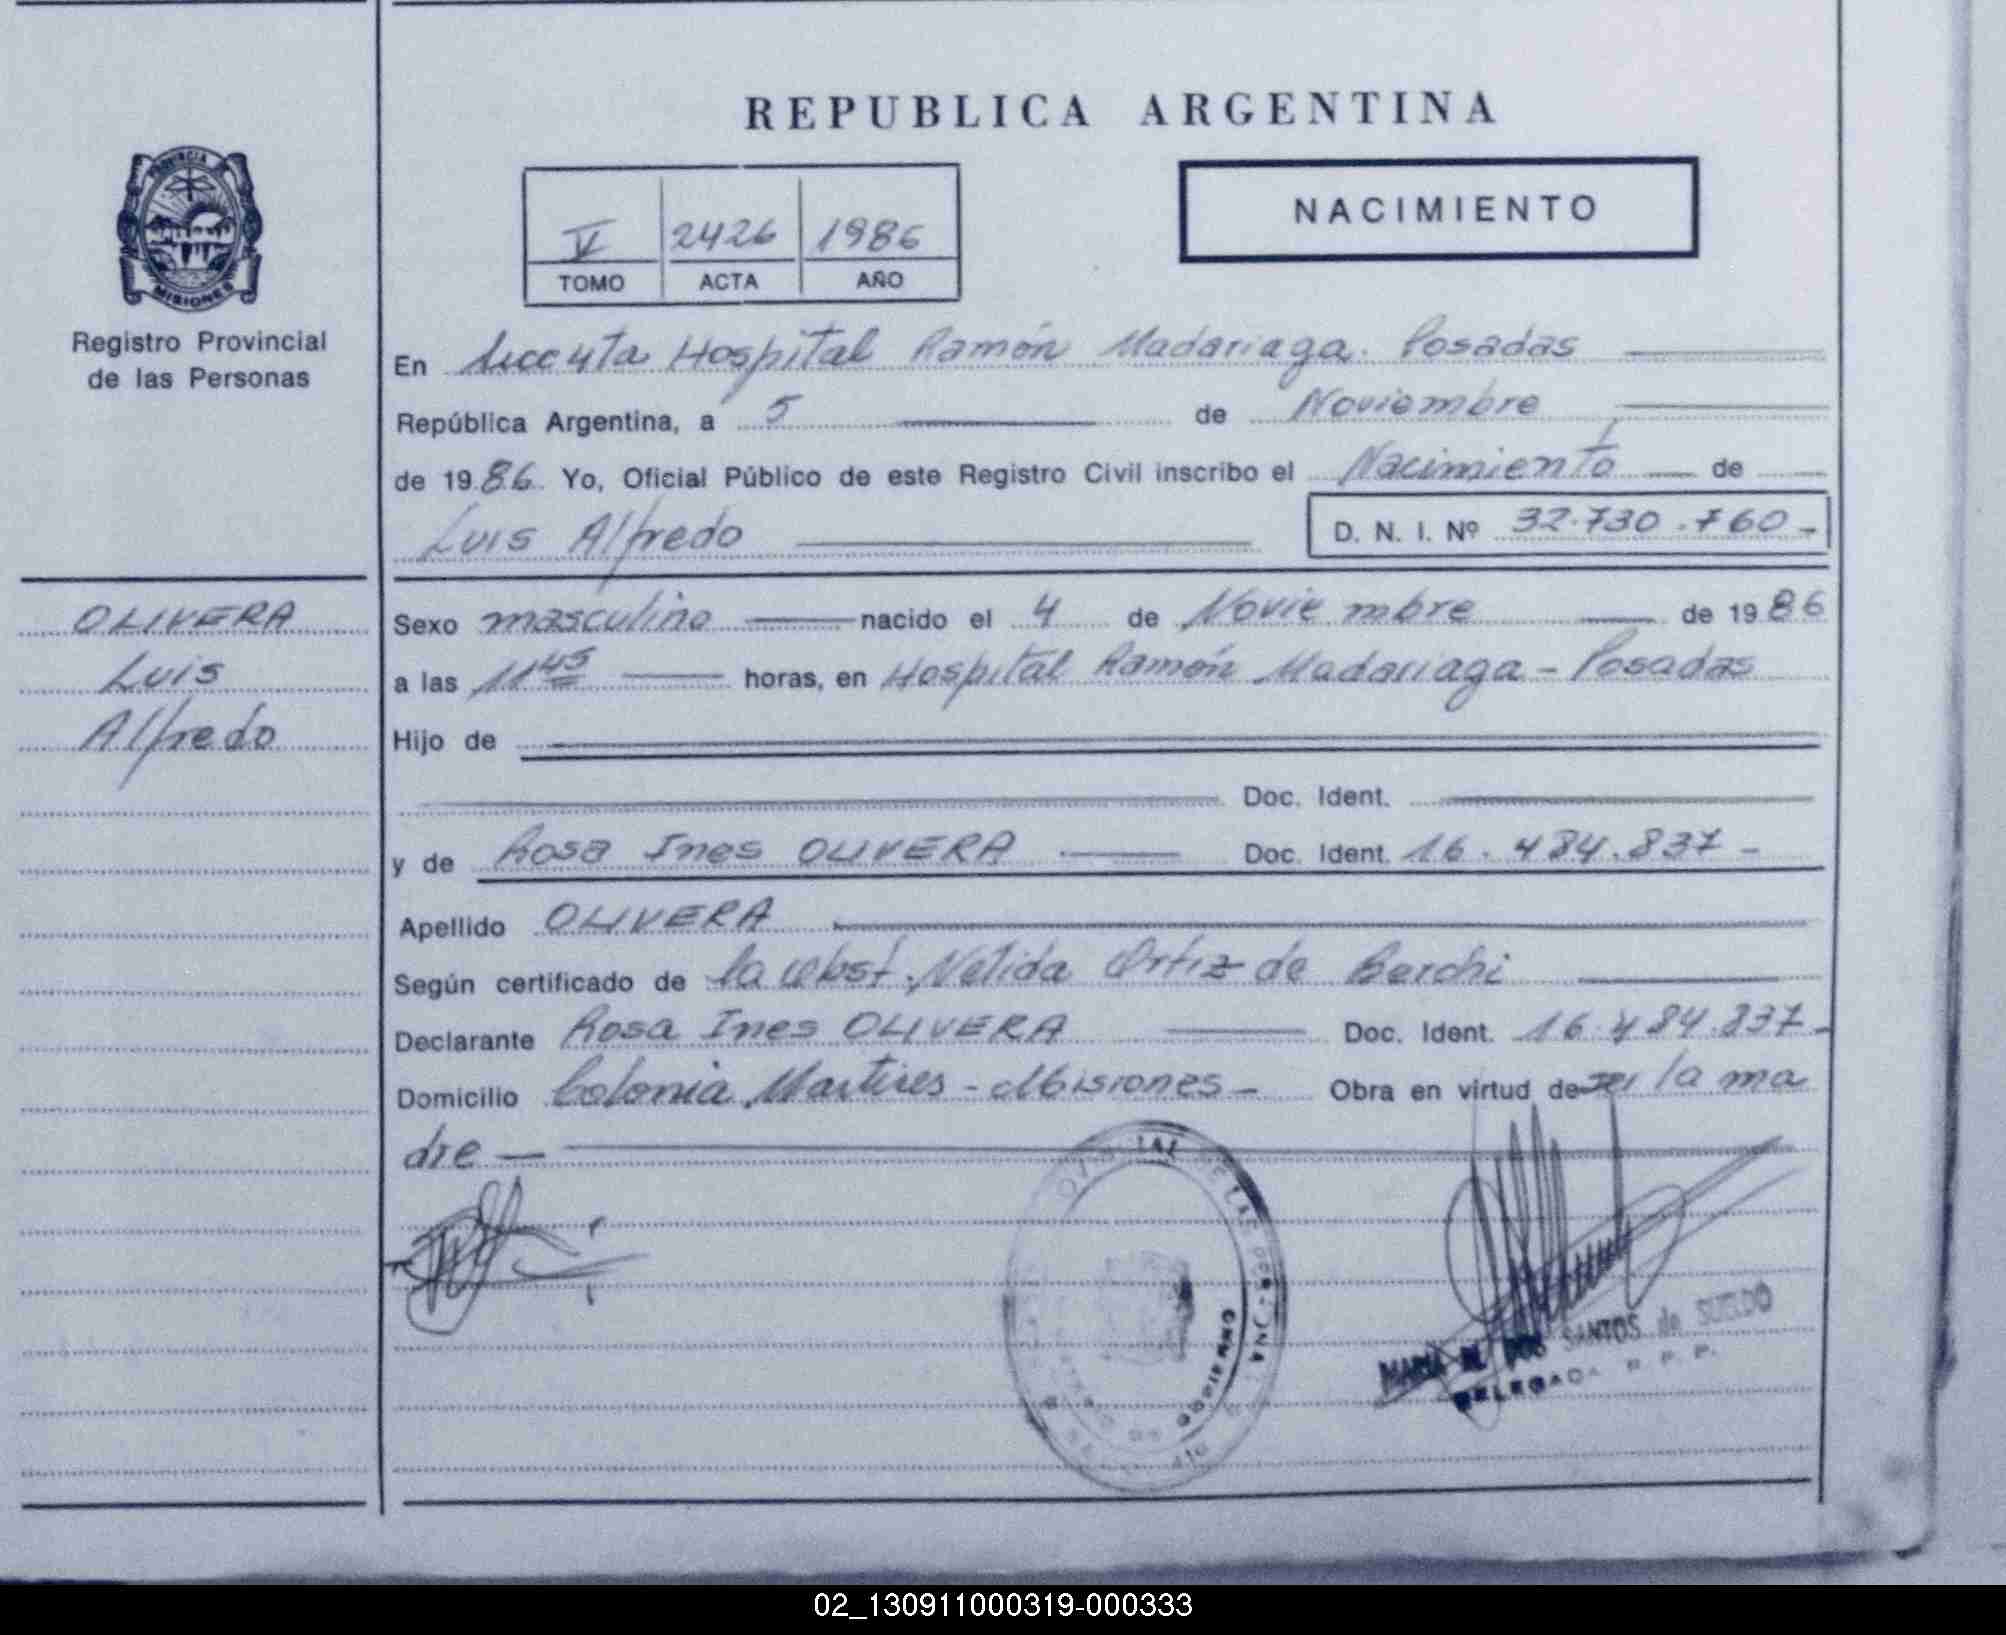 REPUBLICA ARGENTINA
PROVINCIA DE
MISIONES
Registro Provincial
de las Personas
NACIMIENTO
V 2426 1986
TOMO ACTA AÑO
En Hospital Ramón Madariaga. Posadas
República Argentina, a 5 de Noviembre
de 1986. Yo, Oficial Público de este Registro Civil inscribo el Nacimiento de
Luis Alfredo
D. N. I. Nº 32.730.760-
OLIVERA
Luis
Alfredo
Sexo masculino nacido el 4 de Noviembre de 1986
a las 11 45 horas, en Hospital Ramón Madariaga - Posadas
Hijo de
Doc. Ident.
y de Rosa Ines OLIVERA Doc. Ident. 16.484.837-
Apellido OLIVERA
Según certificado de la obst. Nelida Ortiz de Berchi
Declarante Rosa Ines OLIVERA Doc. Ident. 16.484.837-
Domicilio Colonia Martires - Misiones - Obra en virtud de ser la ma
dre -
DE LAS PERSONA
MARIA DOS SANTOS de SUELDO
DELEGADA R. P. P.
02_130911000319-000333